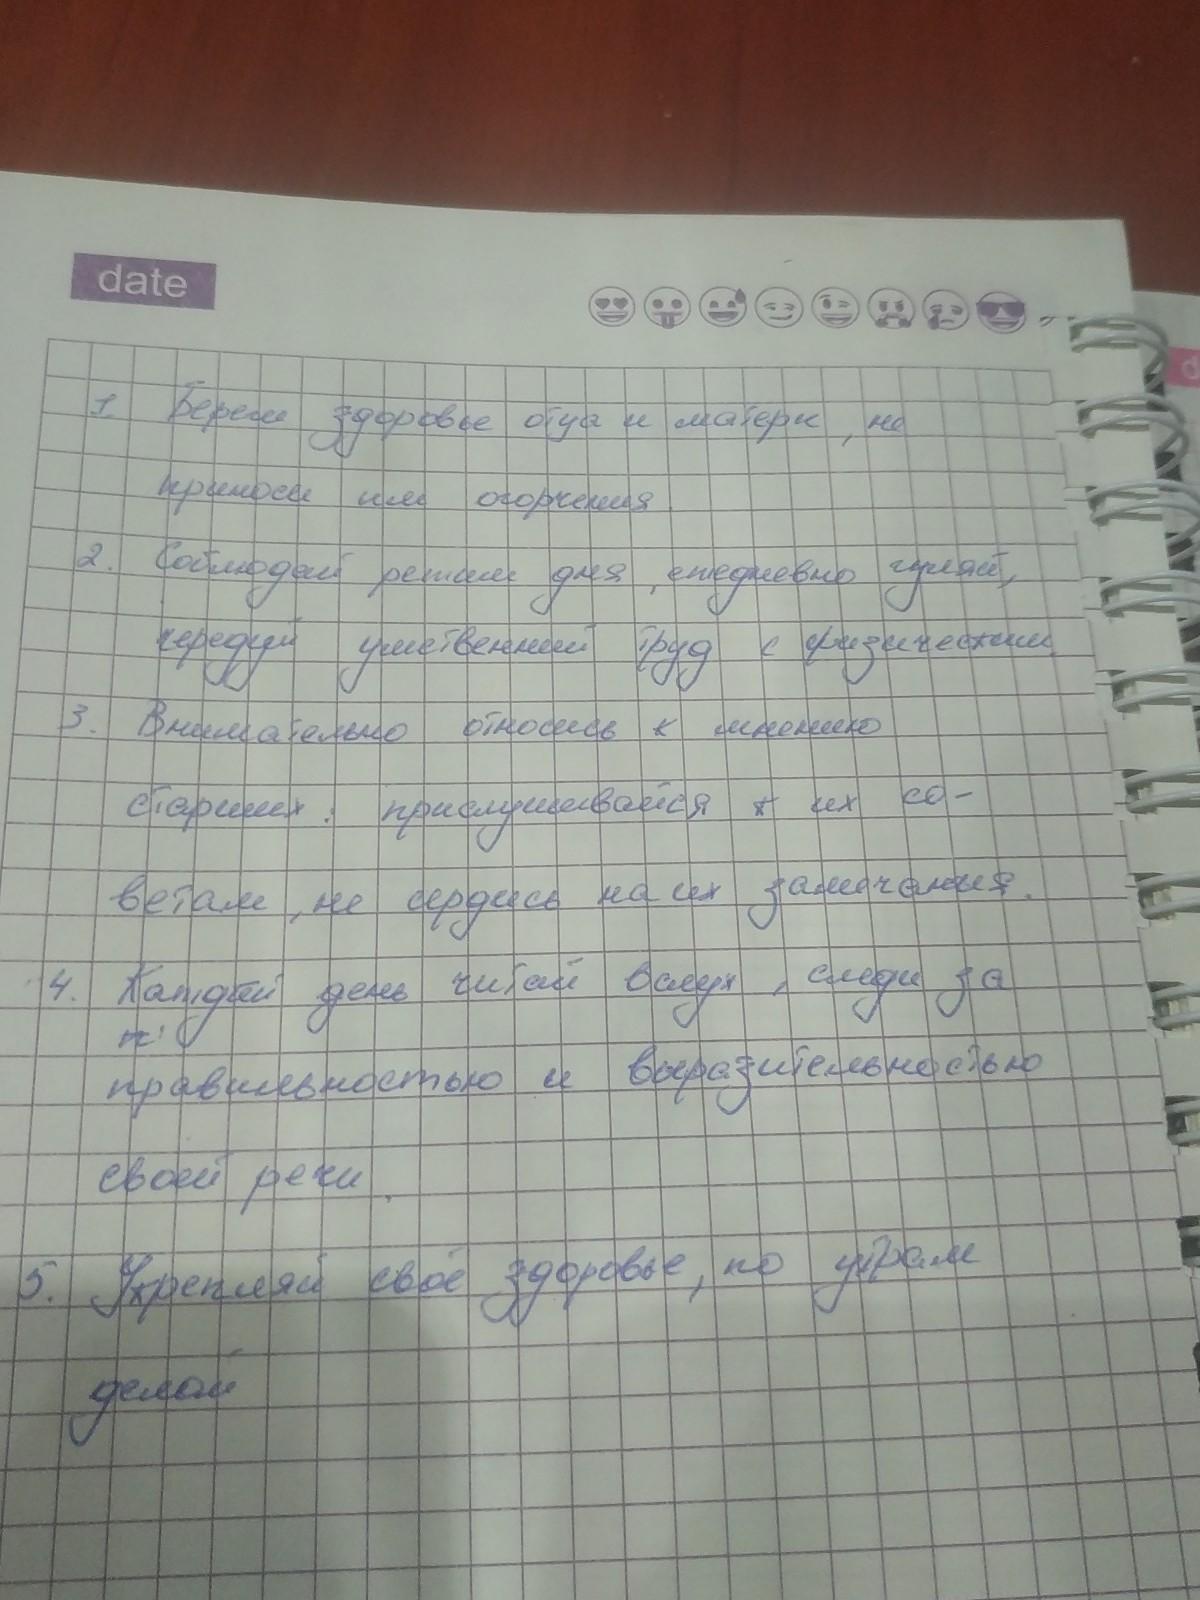 date
1. Береги здоровье отца и матери, не
приноси им огорчения
2. Соблюдай режим дня, ежедневно гуляй,
чередуй умственный труд с физическим
3. Внимательно относись к мнению
старших: прислушивайся к их со-
ветам, не сердись на их замечания.
4. Каждый день читай вслух, следи за
правильностью и выразительностью
своей речи.
5. Укрепляй своё здоровье, по утрам
делай